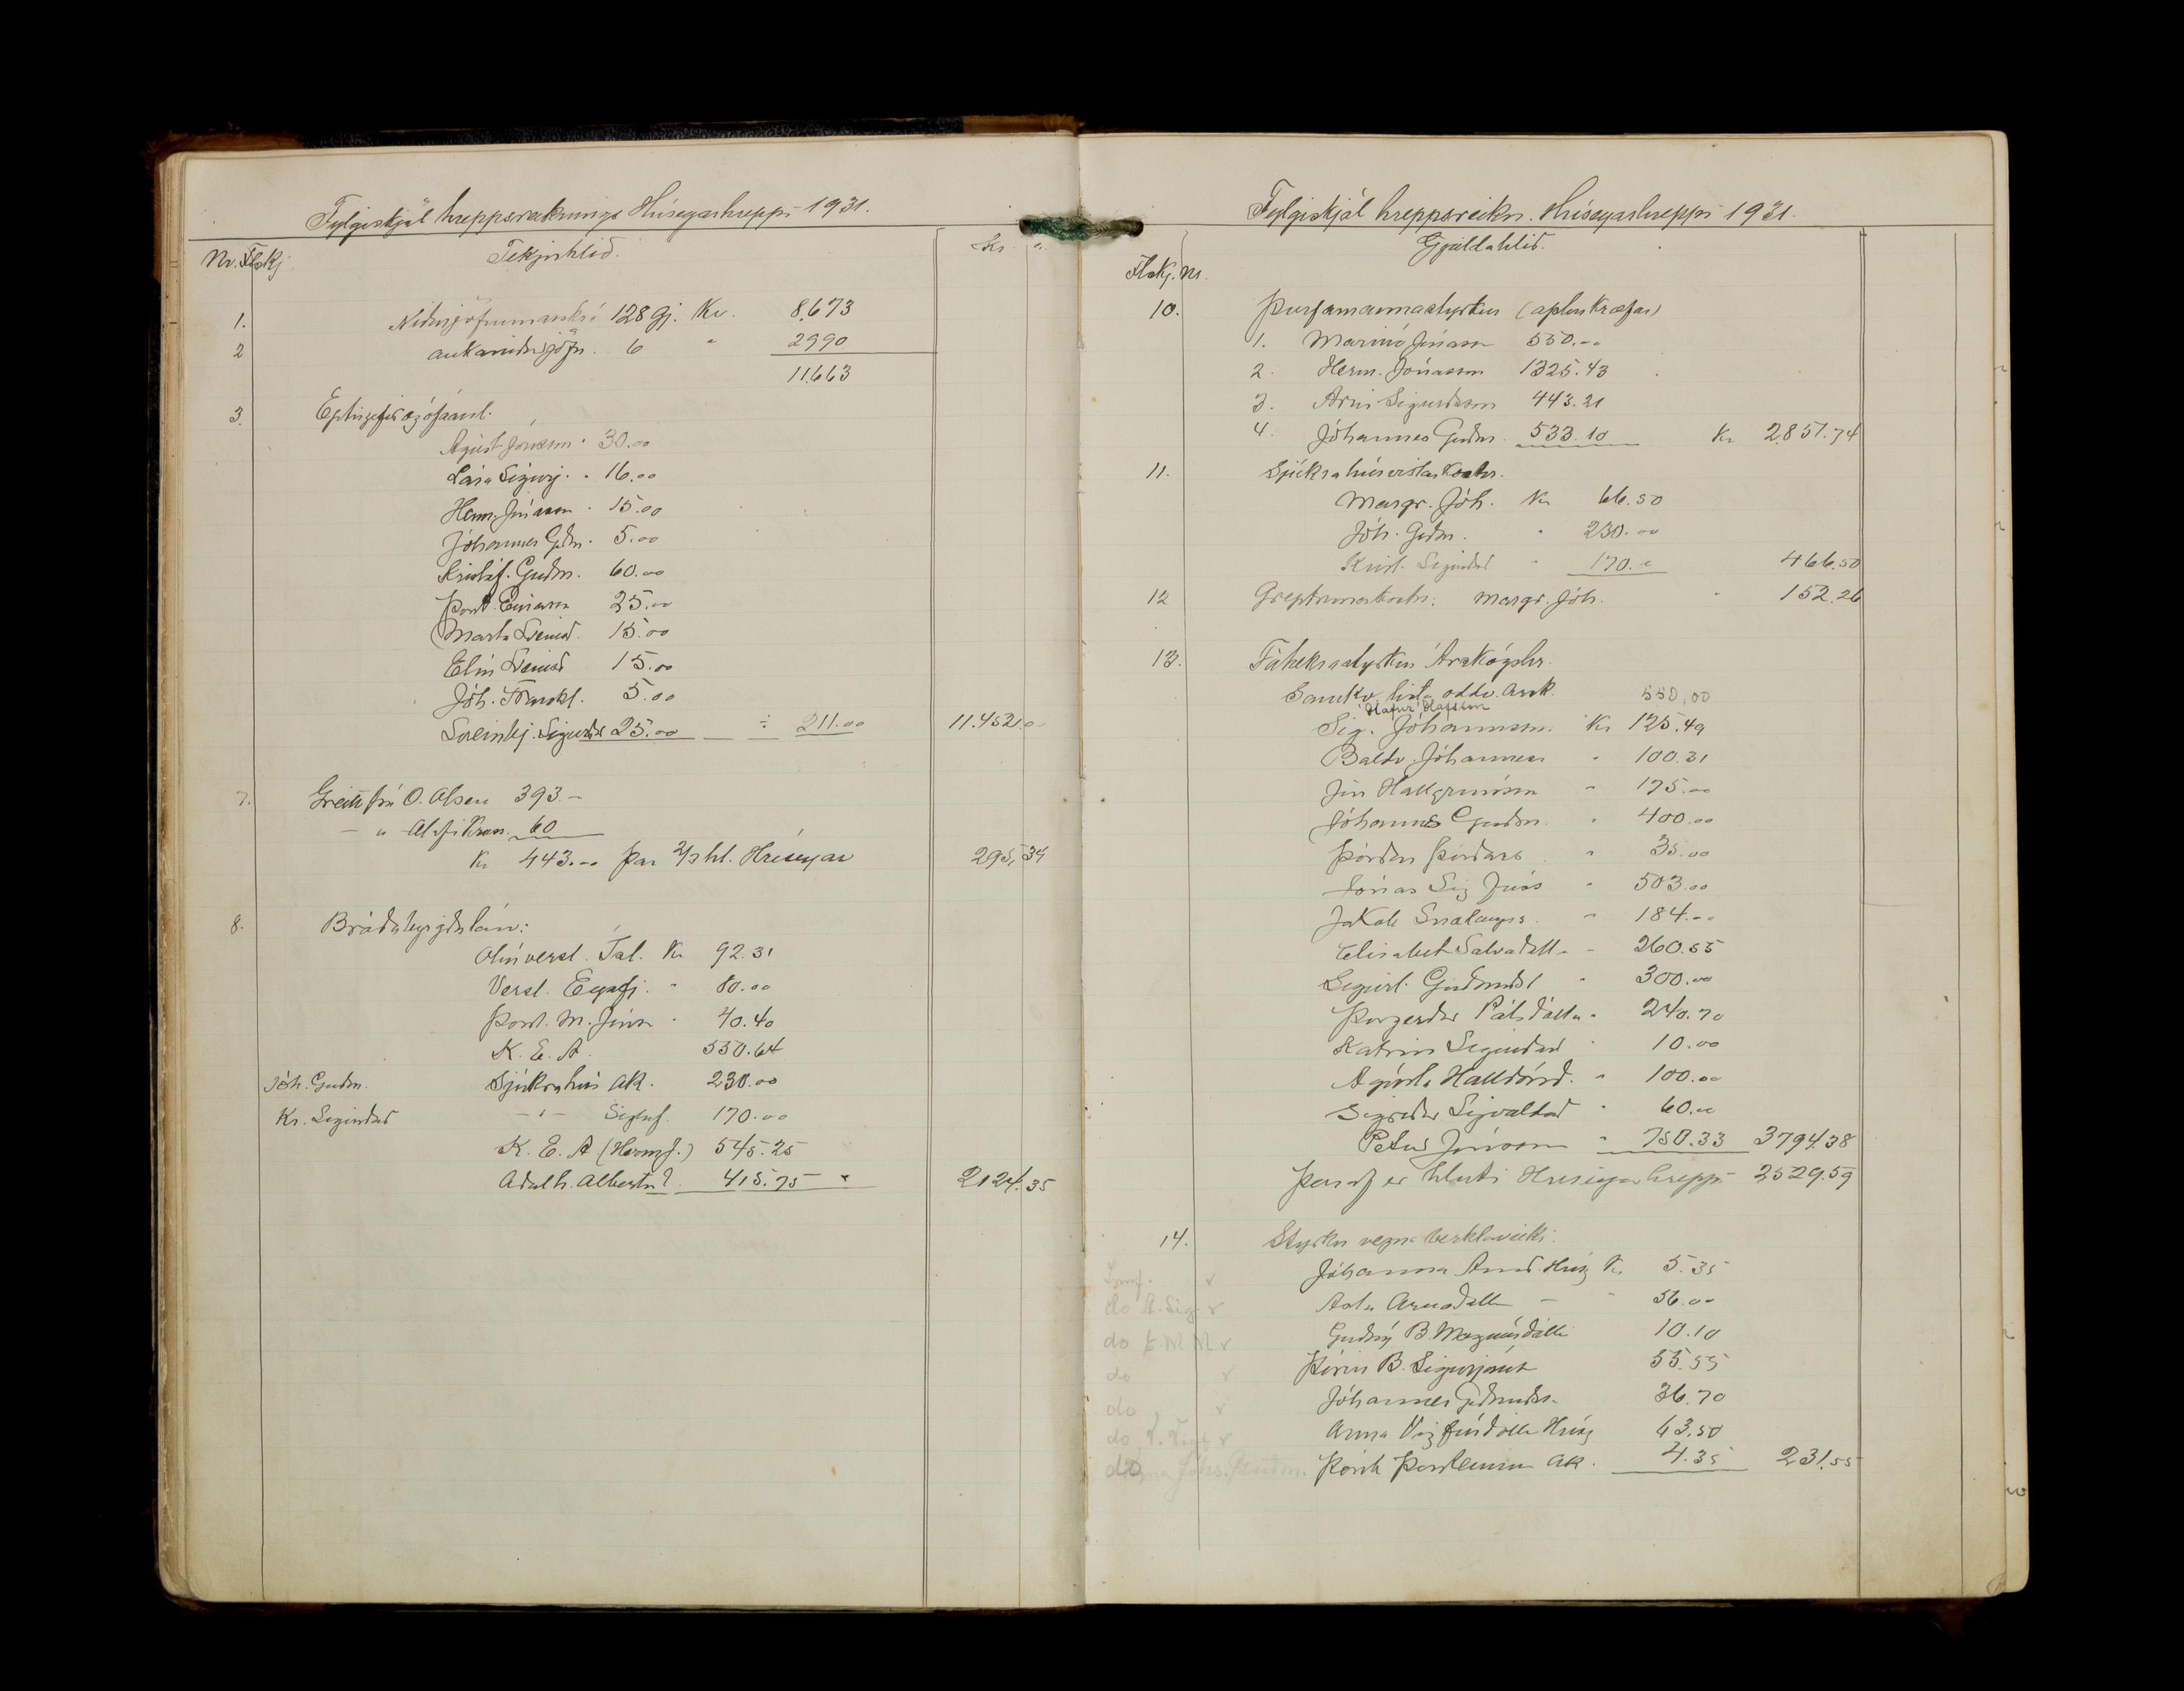 Fylgiskjöl hreppsreiknings Hríseyarhrepps 1931.
Nr. Flskj Tekjuhlið. Kr. a.
1. Niðurjöfnunarskrá 128 gj. Kr. 8,673
2 aukaniðurjöfn. 6 " 2990
11.663
3. Eptirgefið og ófáanl.
Agúst Jónsson " 30.00
Lára Sigurj. " 16.00
Herm. Jónasson " 15.00
Jóhannes Guðm. 5.00
Kristáf. Guðm. 60.00
Þorst. Einarsson 25.00
Marta Sveinsd. 15.00
Elín Sveinsd 15.00
Jóh. Frankl. 5.00
Sveinbj. Sigurðs 25.00 ÷ 211.00 11.452.00
7. Greitt frá O. Olsen 393.–
– " – 60
Kr 443.00 þar 2/3 hl. Hríseyar 295,34
8. Bráðabyrgðalán:
Olíuversl. Ísl. Kr 92.31
Versl. Eyafj. " 80.00
Þorst. M. Jónss " 40.40
K. E. A. 550.64
Jóh. Guðm. Sjúkrahús AK. 230.00
Kr. Sigurðss – " – Sigluf. 170.00
K. E. A (Hermj.) 545.25
Aðalh. Albertsd. 415.75 " 2124.35
Fylgiskjöl hreppsreikn. Hríseyarhrepps 1931.
Gjaldahlið.
Flskj. nr.
10. Þurfamannastyrkur (apturkræfur)
1. Marinó Jónasson 550.00
2. Herm. Jónasson 1325.43
3. Árni Sigurðsson 443.21
4. Jóhannes Guðm. 533.10 Kr 2,851.74
11. Sjúkrahúsvistarkostn.
Margr. Jóh. Kr 66.50
Jóh. Guðm. " 230.00
Krist. Sigurðss " 170.00 466.50
12 Greptrunarkostn. Margr. Jóh. " 152.26
13. Fátækrastyrkur Árskógshr.
Samkv. lista oddv. Arsk. 550,00
Ólafur Ólafsson
Sig. Jóhannsson. Kr 125.49
Baldv. Jóhanness " 100.31
Jón Hallgrímsson " 175.00
Jóhannes Guðm. " 400.00
Þórður Þórðars " 35.00
Jónas Sig Jónss " 503.00
Jakob Snælaugss. " 184.00
Elísabet Salvadótt – 260.55
Sigurl. Guðmundsd " 300.00
Þorgerður Pálsdóttir " 240.70
Katrín Sigurðard " 10.00
Ágústa Halldórsd. " 100.00
Sigríður Sigvaldad " 60.00
Petur Jónsson " 750.33 3794.38
Þar af er hluti Hríseyarhrepps 2,529.59
14. Styrkur vegna berklaveiki.
Jóhanna Hrísey Kr 5.35
do Á. Sig. v Asta Arnadóttir – " 56.00
do v Guðný B. Magnúsdóttir 10.10
do v Þórir B. Sigurjónss 55.55
do v Jóhannes Guðmundss. 36.70
do v Anna Vigfúsdóttir Hrísey 63.50
do Þorst. Þorsteinsson AK. 4.35 231.55